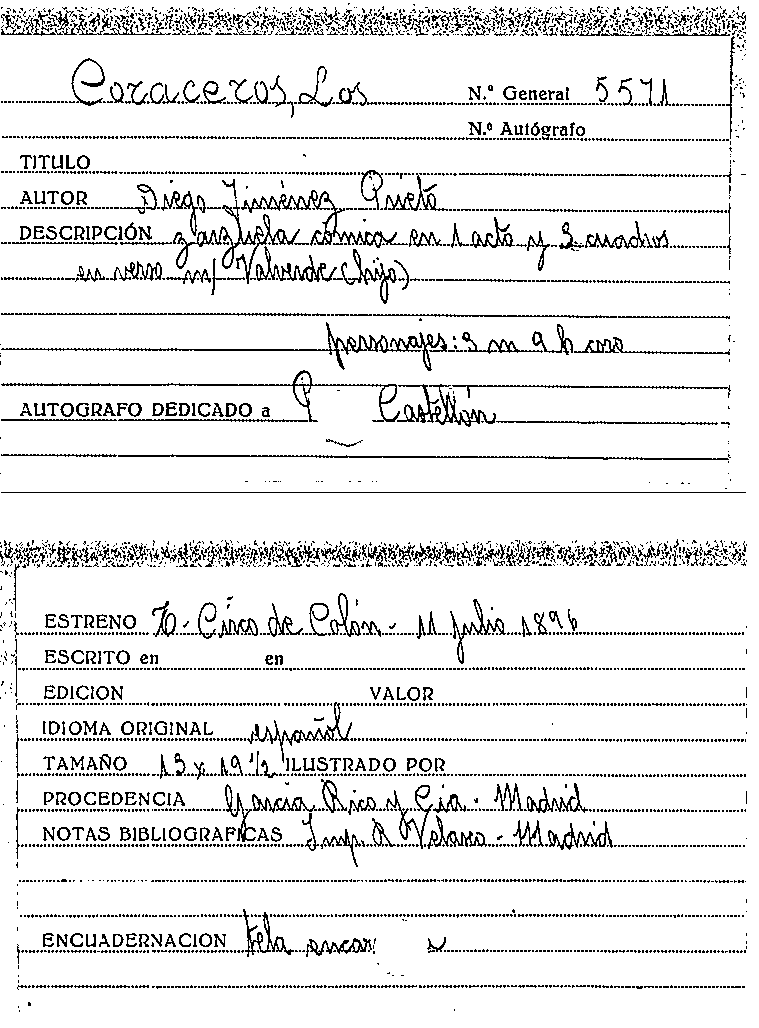 Coraceros, Los N.º General 5571
N.º Autógrafo
TITULO
AUTOR Diego Jiménez Prieto
DESCRIPCIÓN zarzuela cómica en 1 acto y 3 cuadros
en verso m/ Valverde (hijo)
personajes: 3 m 9 h coro
AUTOGRAFO DEDICADO a P Castellón
ESTRENO Circo de Colón - 11 julio 1896
ESCRITO en en
EDICION VALOR
IDIOMA ORIGINAL español
TAMAÑO 13 x 19 1/2 ILUSTRADO POR
PROCEDENCIA García Rico y Cia - Madrid
NOTAS BIBLIOGRAFICAS Imp. R Velasco - Madrid
ENCUADERNACION tela